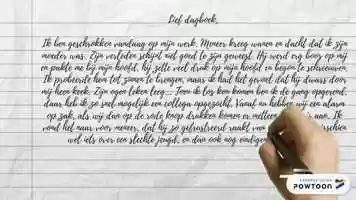 Lief dagboek,
Ik ben geschrokken vandaag op mijn werk. Meneer kreeg wanen en dacht dat ik zijn
moeder was. Zijn verleden schijnt niet goed te zijn geweest. Hij werd erg boos op mij
en pakte me bij mijn hoofd, hij zette veel druk op mijn hoofd en begon te schreeuwen.
Ik probeerde hem tot zinnen te brengen, maar ik had het gevoel dat hij dwars door
mij heen keek. Zijn ogen leken leeg... Toen ik los kon komen ben ik de gang opgerend,
daar heb ik zo snel mogelijk een collega opgezocht. Vanaf nu hebben wij een alarm
op zak, als wij dan op de rode knop drukken komen er meteen aan. Ik
vond het naar voor meneer, dat hij zo gefrustreerd raakt van
wel iets over een slechte jeugd, en dan ook nog eindigen
POWTOON